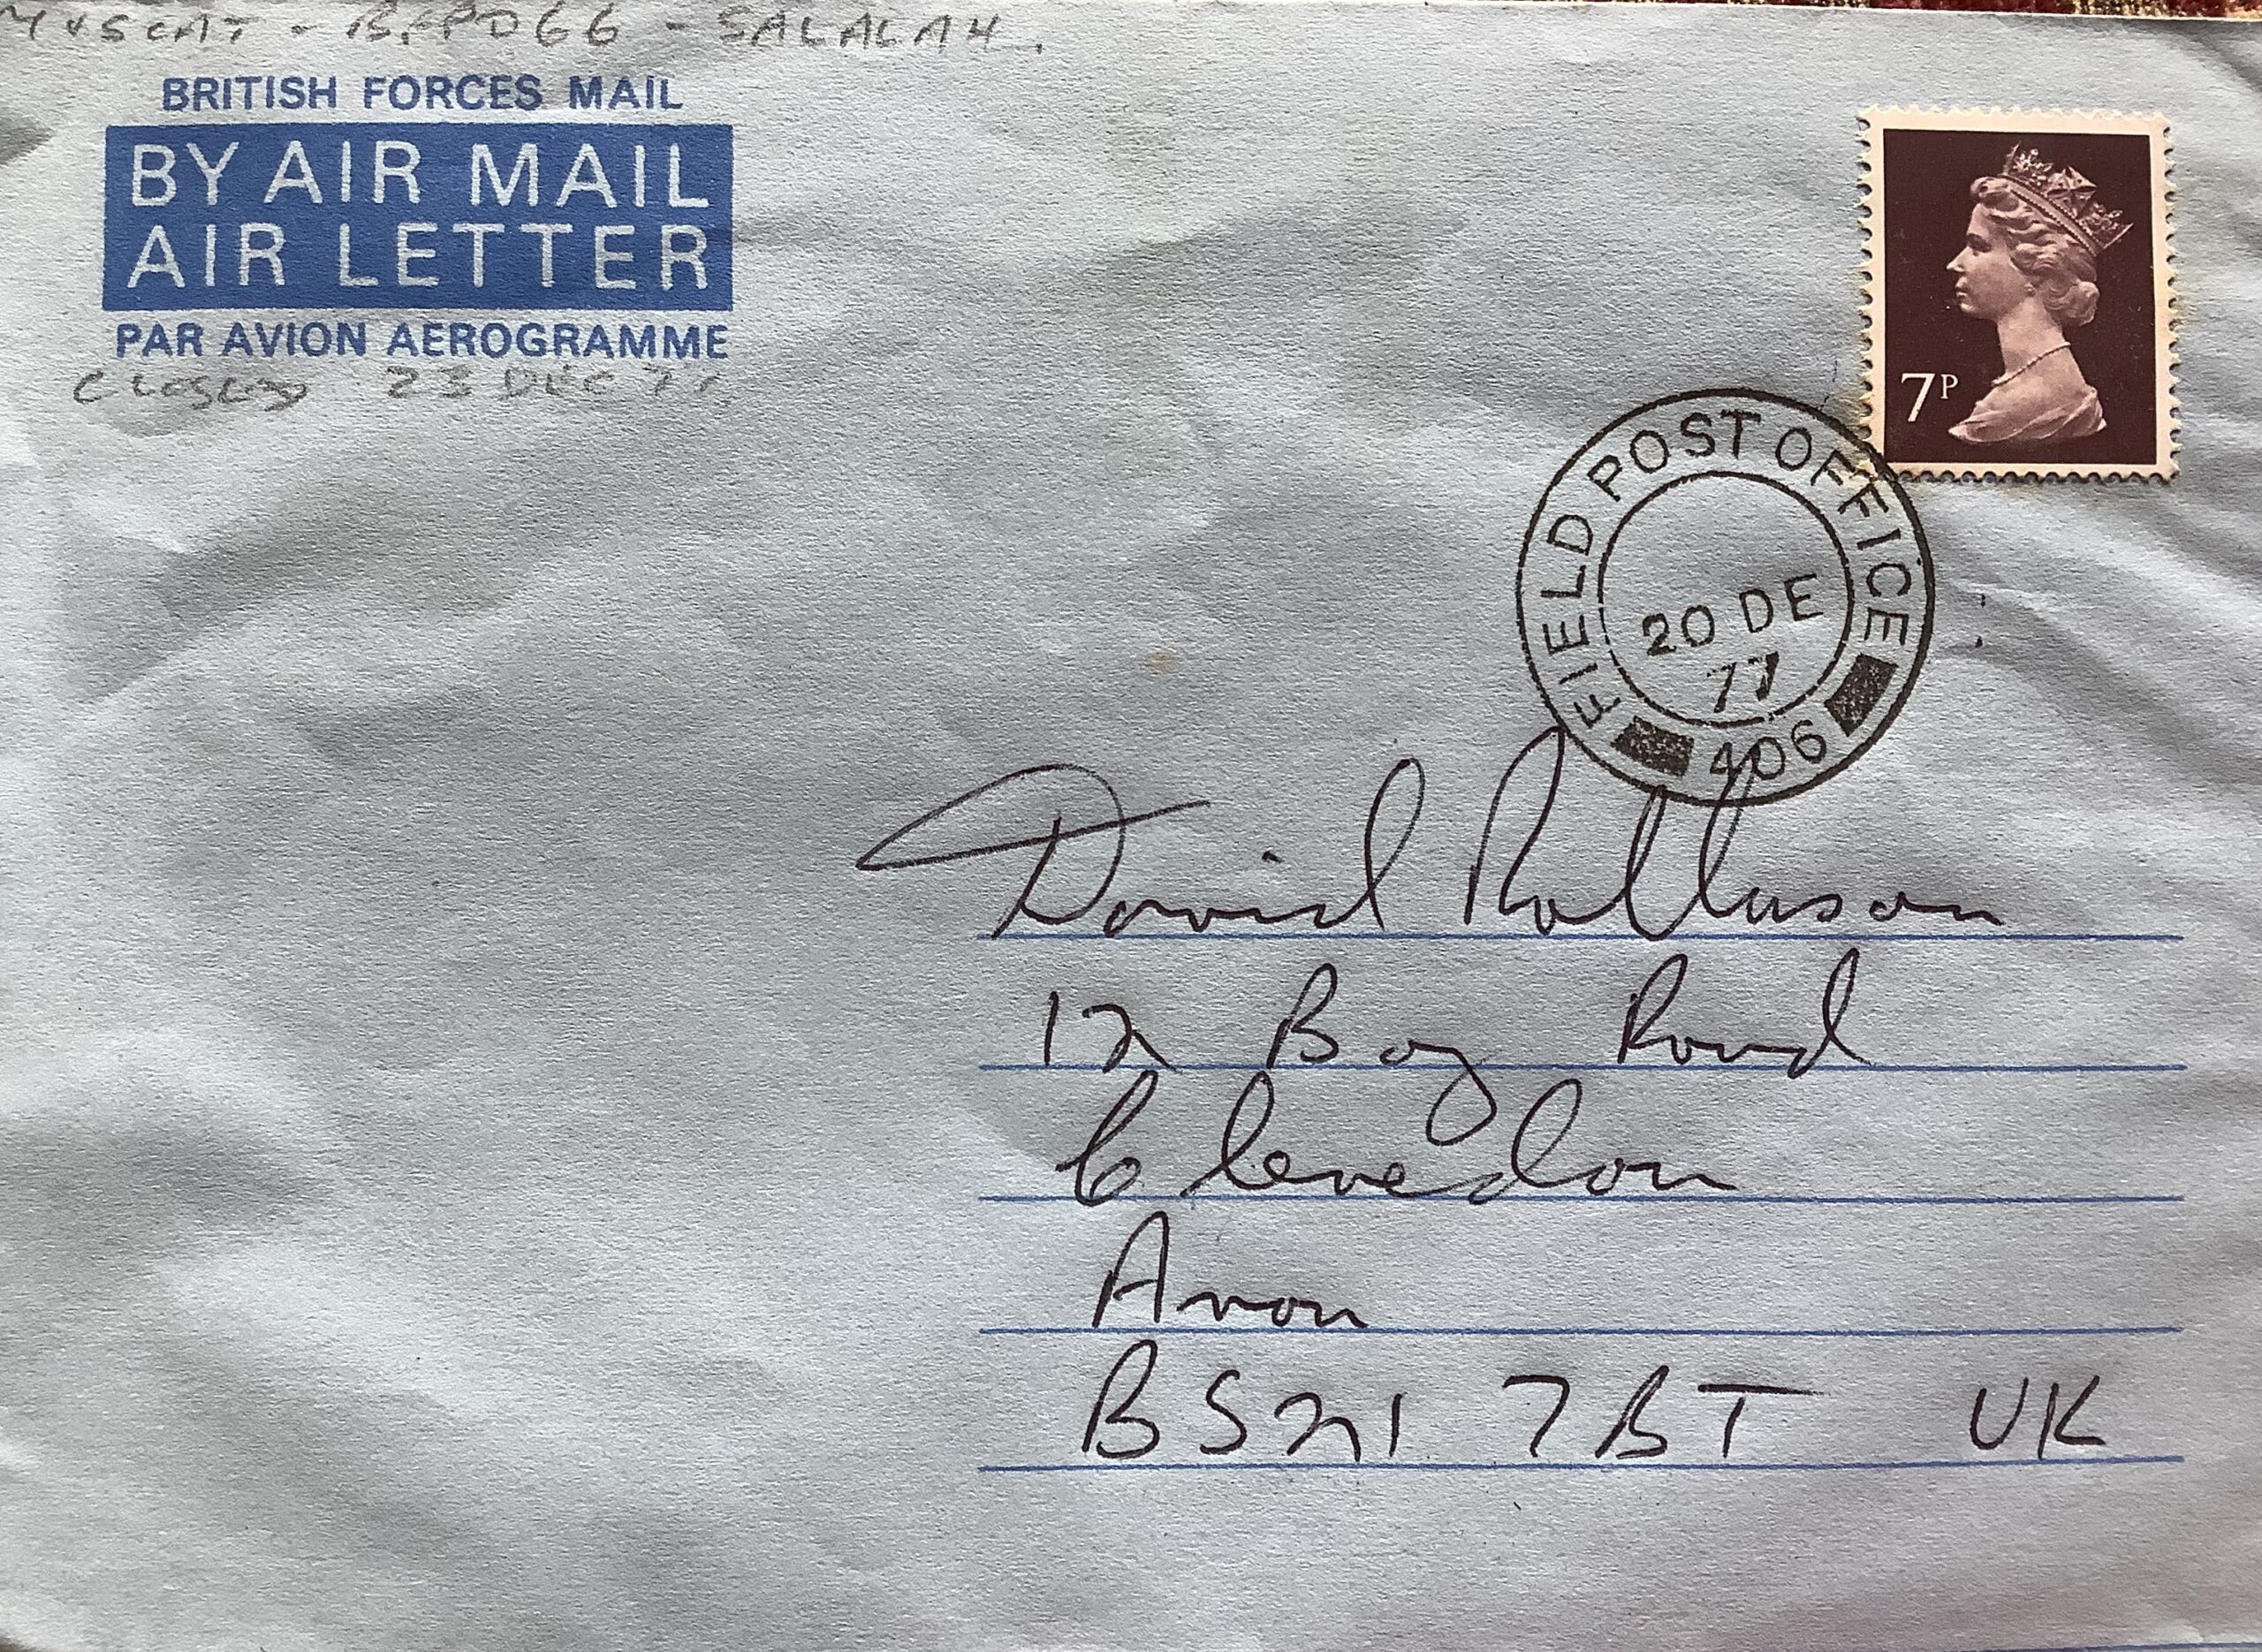 MUSCAT - BFPO 66 - SALALAH.
BRITISH FORCES MAIL
BY AIR MAIL
AIR LETTER
PAR AVION AEROGRAMME
CLOSED 23 DEC 77
7P
FIELD POST OFFICE
20 DE
77
406
David Rollinson
12 Bay Road
Clevedon
Avon
BS21 7BT UK